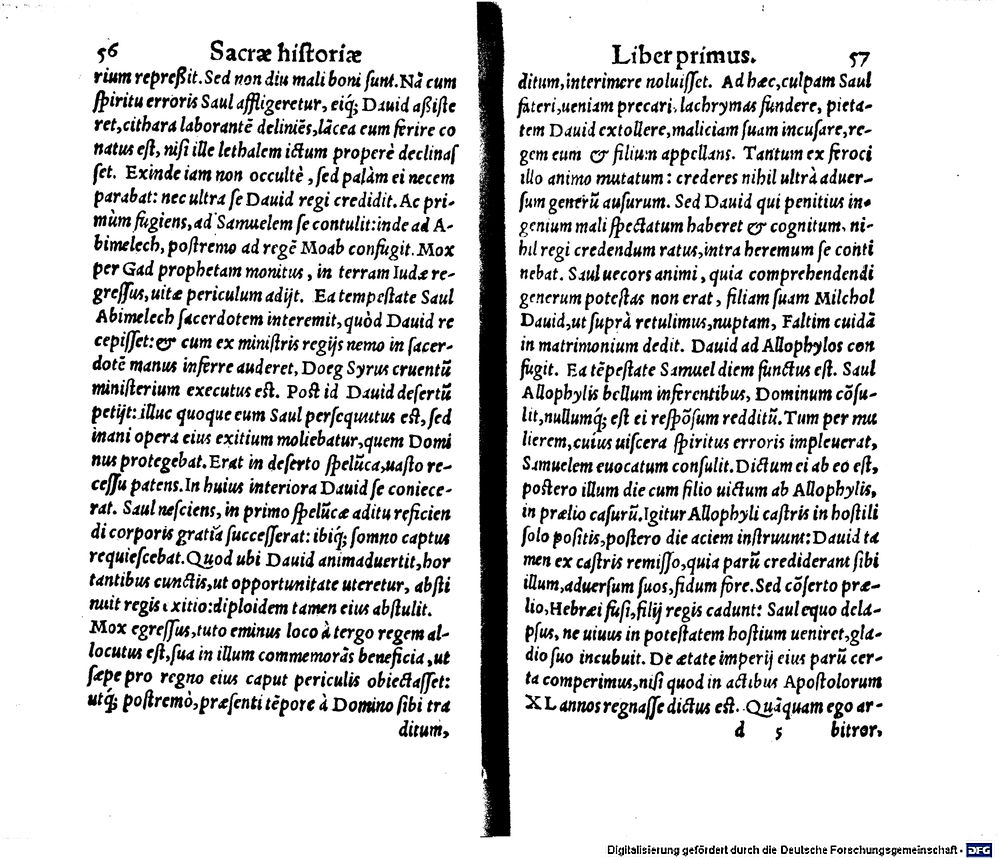 56 Sacræ historiæ
rium repreßit. Sed non diu mali boni sunt. Nã cum
spiritu erroris Saul affligeretur, eiq́; Dauid aßiste
ret, cithara laborantẽ deliniẽs, lãcea eum ferire co
natus est, nisi ille lethalem ictum properè declinas
set. Exinde iam non occultè, sed palàm ei necem
parabat: nec ultra se Dauid regi credidit. Ac pri-
mùm fugiens, ad Samuelem se contulit: inde ad A-
bimelech, postremo ad regẽ Moab confugit. Mox
per Gad prophetam monitus, in terram Iudæ re-
gressus, uitæ periculum adijt. Ea tempestate Saul
Abimelech sacerdotem interemit, quòd Dauid re
cepisset: & cum ex ministris regijs nemo in sacer-
dotẽ manus inferre auderet, Doeg Syrus cruentũ
ministerium executus est. Post id Dauid desertũ
petijt: illuc quoque eum Saul persequutus est, sed
inani opera eius exitium moliebatur, quem Domi
nus protegebat. Erat in deserto spelũca, uasto re-
cessu patens. In huius interiora Dauid se coniece-
rat. Saul nesciens, in primo spelũcæ aditu reficien
di corporis gratiã successerat: ibiq́; somno captus
requiescebat. Quod ubi Dauid animaduertit, hor
tantibus cunctis, ut opportunitate uteretur, absti
nuit regis exitio: diploidem tamen eius abstulit.
Mox egressus, tuto eminus loco à tergo regem al-
locutus est, sua in illum commemorãs beneficia, ut
sæpe pro regno eius caput periculis obiectasset:
utq́; postremò, præsenti tẽpore à Domino sibi tra
ditum,
Liber primus. 57
ditum, interimere noluisset. Ad hæc, culpam Saul
fateri, ueniam precari, lachrymas fundere, pieta-
tem Dauid extollere, maliciam suam incusare, re-
gem eum & filium appellans. Tantum ex feroci
illo animo mutatum: crederes nihil ultrà aduer-
sum generũ ausurum. Sed Dauid qui penitius in-
genium mali spectatum haberet & cognitum, ni-
hil regi credendum ratus, intra heremum se conti
nebat. Saul uecors animi, quia comprehendendi
generum potestas non erat, filiam suam Milchol
Dauid, ut suprà retulimus, nuptam, Faltim cuidã
in matrimonium dedit. Dauid ad Allophylos con
fugit. Ea tẽpestate Samuel diem functus est. Saul
Allophylis bellum inferentibus, Dominum cõsu-
lit, nullumq́; est ei respõsum redditũ. Tum per mu
lierem, cuius uiscera spiritus erroris impleuerat,
Samuelem euocatum consulit. Dictum ei ab eo est,
postero illum die cum filio uictum ab Allophylis,
in prælio casurũ. Igitur Allophyli castris in hostili
solo positis, postero die aciem instruunt: Dauid ta
men ex castris remisso, quia parũ crediderant sibi
illum, aduersum suos, fidum fore. Sed cõserto præ-
lio, Hebræi fusi, filij regis cadunt: Saul equo dela-
psus, ne uiuus in potestatem hostium ueniret, gla-
dio suo incubuit. De ætate imperij eius parũ cer-
ta comperimus, nisi quod in actibus Apostolorum
XL annos regnasse dictus est. Quãquam ego ar-
d 5 bitror,
Digitalisierung gefördert durch die Deutsche Forschungsgemeinschaft - DFG